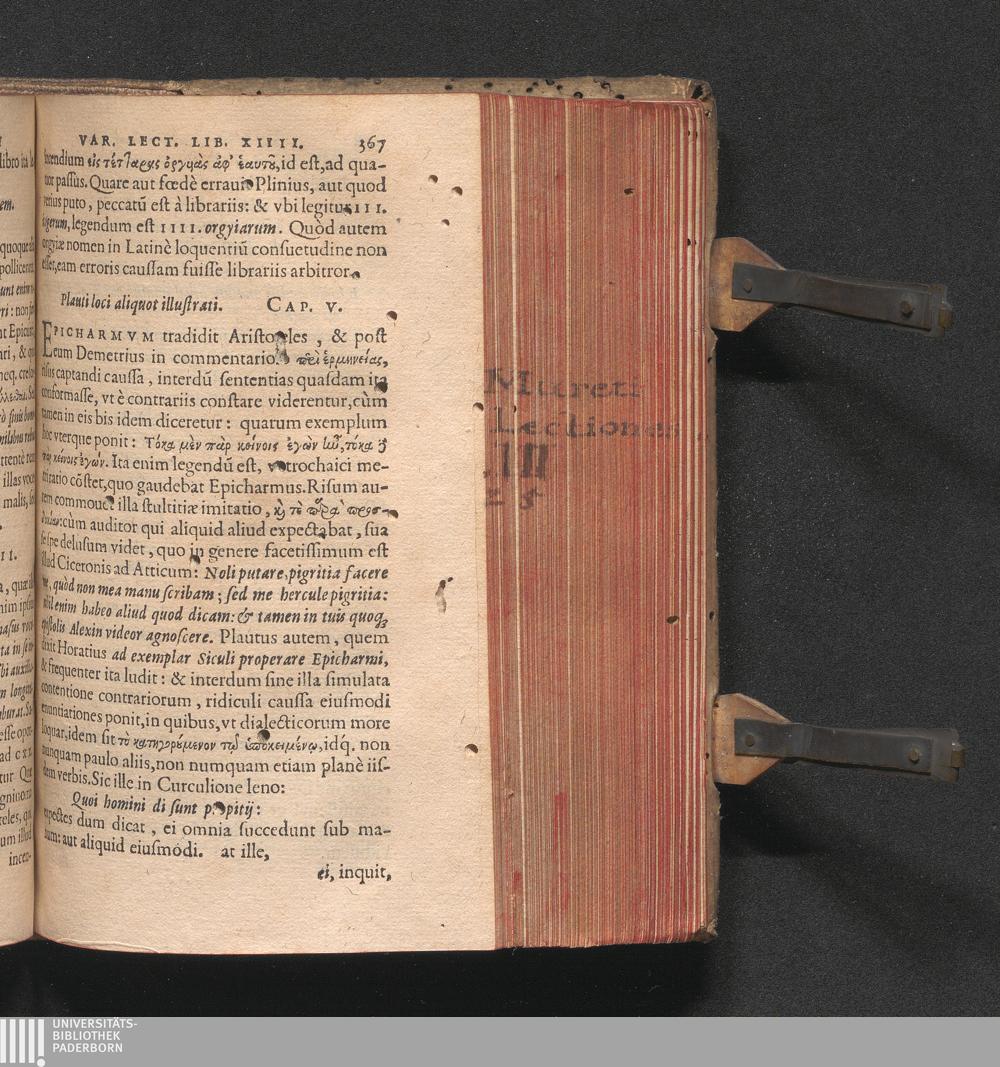 VAR. LECT. LIB. XIIII. 367
incendium εἰς τέτταρας ὀργυιὰς ἀφ' ἑαυτοῦ, id est, ad qua-
tuor passus. Quare aut fœdè errauit Plinius, aut quod
verius puto, peccatū est à librariis: & vbi legitur III.
iugerum, legendum est IIII. orgyiarum. Quòd autem
orgyiæ nomen in Latinè loquentiū consuetudine non
esset, eam erroris caussam fuisse librariis arbitror.
Plauti loci aliquot illustrati. CAP. V.
EPICHARMVM tradidit Aristoteles, & post
eum Demetrius in commentario περὶ ἑρμηνείας,
risus captandi caussa, interdū sententias quasdam ita
conformasse, vt è contrariis constare viderentur, cùm
tamen in eis bis idem diceretur: quarum exemplum
hoc vterque ponit: Τόκα μὲν παρ κείνοις ἐγὼν ἦν, τόκα δὲ
παρ κείνοις ἐγών. Ita enim legendū est, vt trochaici me-
tri ratio cōstet, quo gaudebat Epicharmus. Risum au-
tem commouet illa stultitiæ imitatio, καὶ τὸ παρὰ προσ-
δοκίαν: cùm auditor qui aliquid aliud expectabat, sua
se spe delusum videt, quo in genere facetissimum est
illud Ciceronis ad Atticum: Noli putare, pigritia facere
me, quòd non mea manu scribam; sed me hercule pigritia:
nihil enim habeo aliud quod dicam: & tamen in tuis quoq;
epistolis Alexin videor agnoscere. Plautus autem, quem
dixit Horatius ad exemplar Siculi properare Epicharmi,
& frequenter ita ludit: & interdum sine illa simulata
contentione contrariorum, ridiculi caussa eiusmodi
enuntiationes ponit, in quibus, vt dialecticorum more
loquar, idem sit τὸ κατηγορούμενον τῷ ὑποκειμένῳ, idq́. non
nunquam paulo aliis, non numquam etiam planè iis-
dem verbis. Sic ille in Curculione leno:
Quoi homini di sunt propitij:
expectes dum dicat, ei omnia succedunt sub ma-
num: aut aliquid eiusmodi. at ille,
ei, inquit,
Mureti
Lectiones
UNIVERSITÄTS-
BIBLIOTHEK
PADERBORN